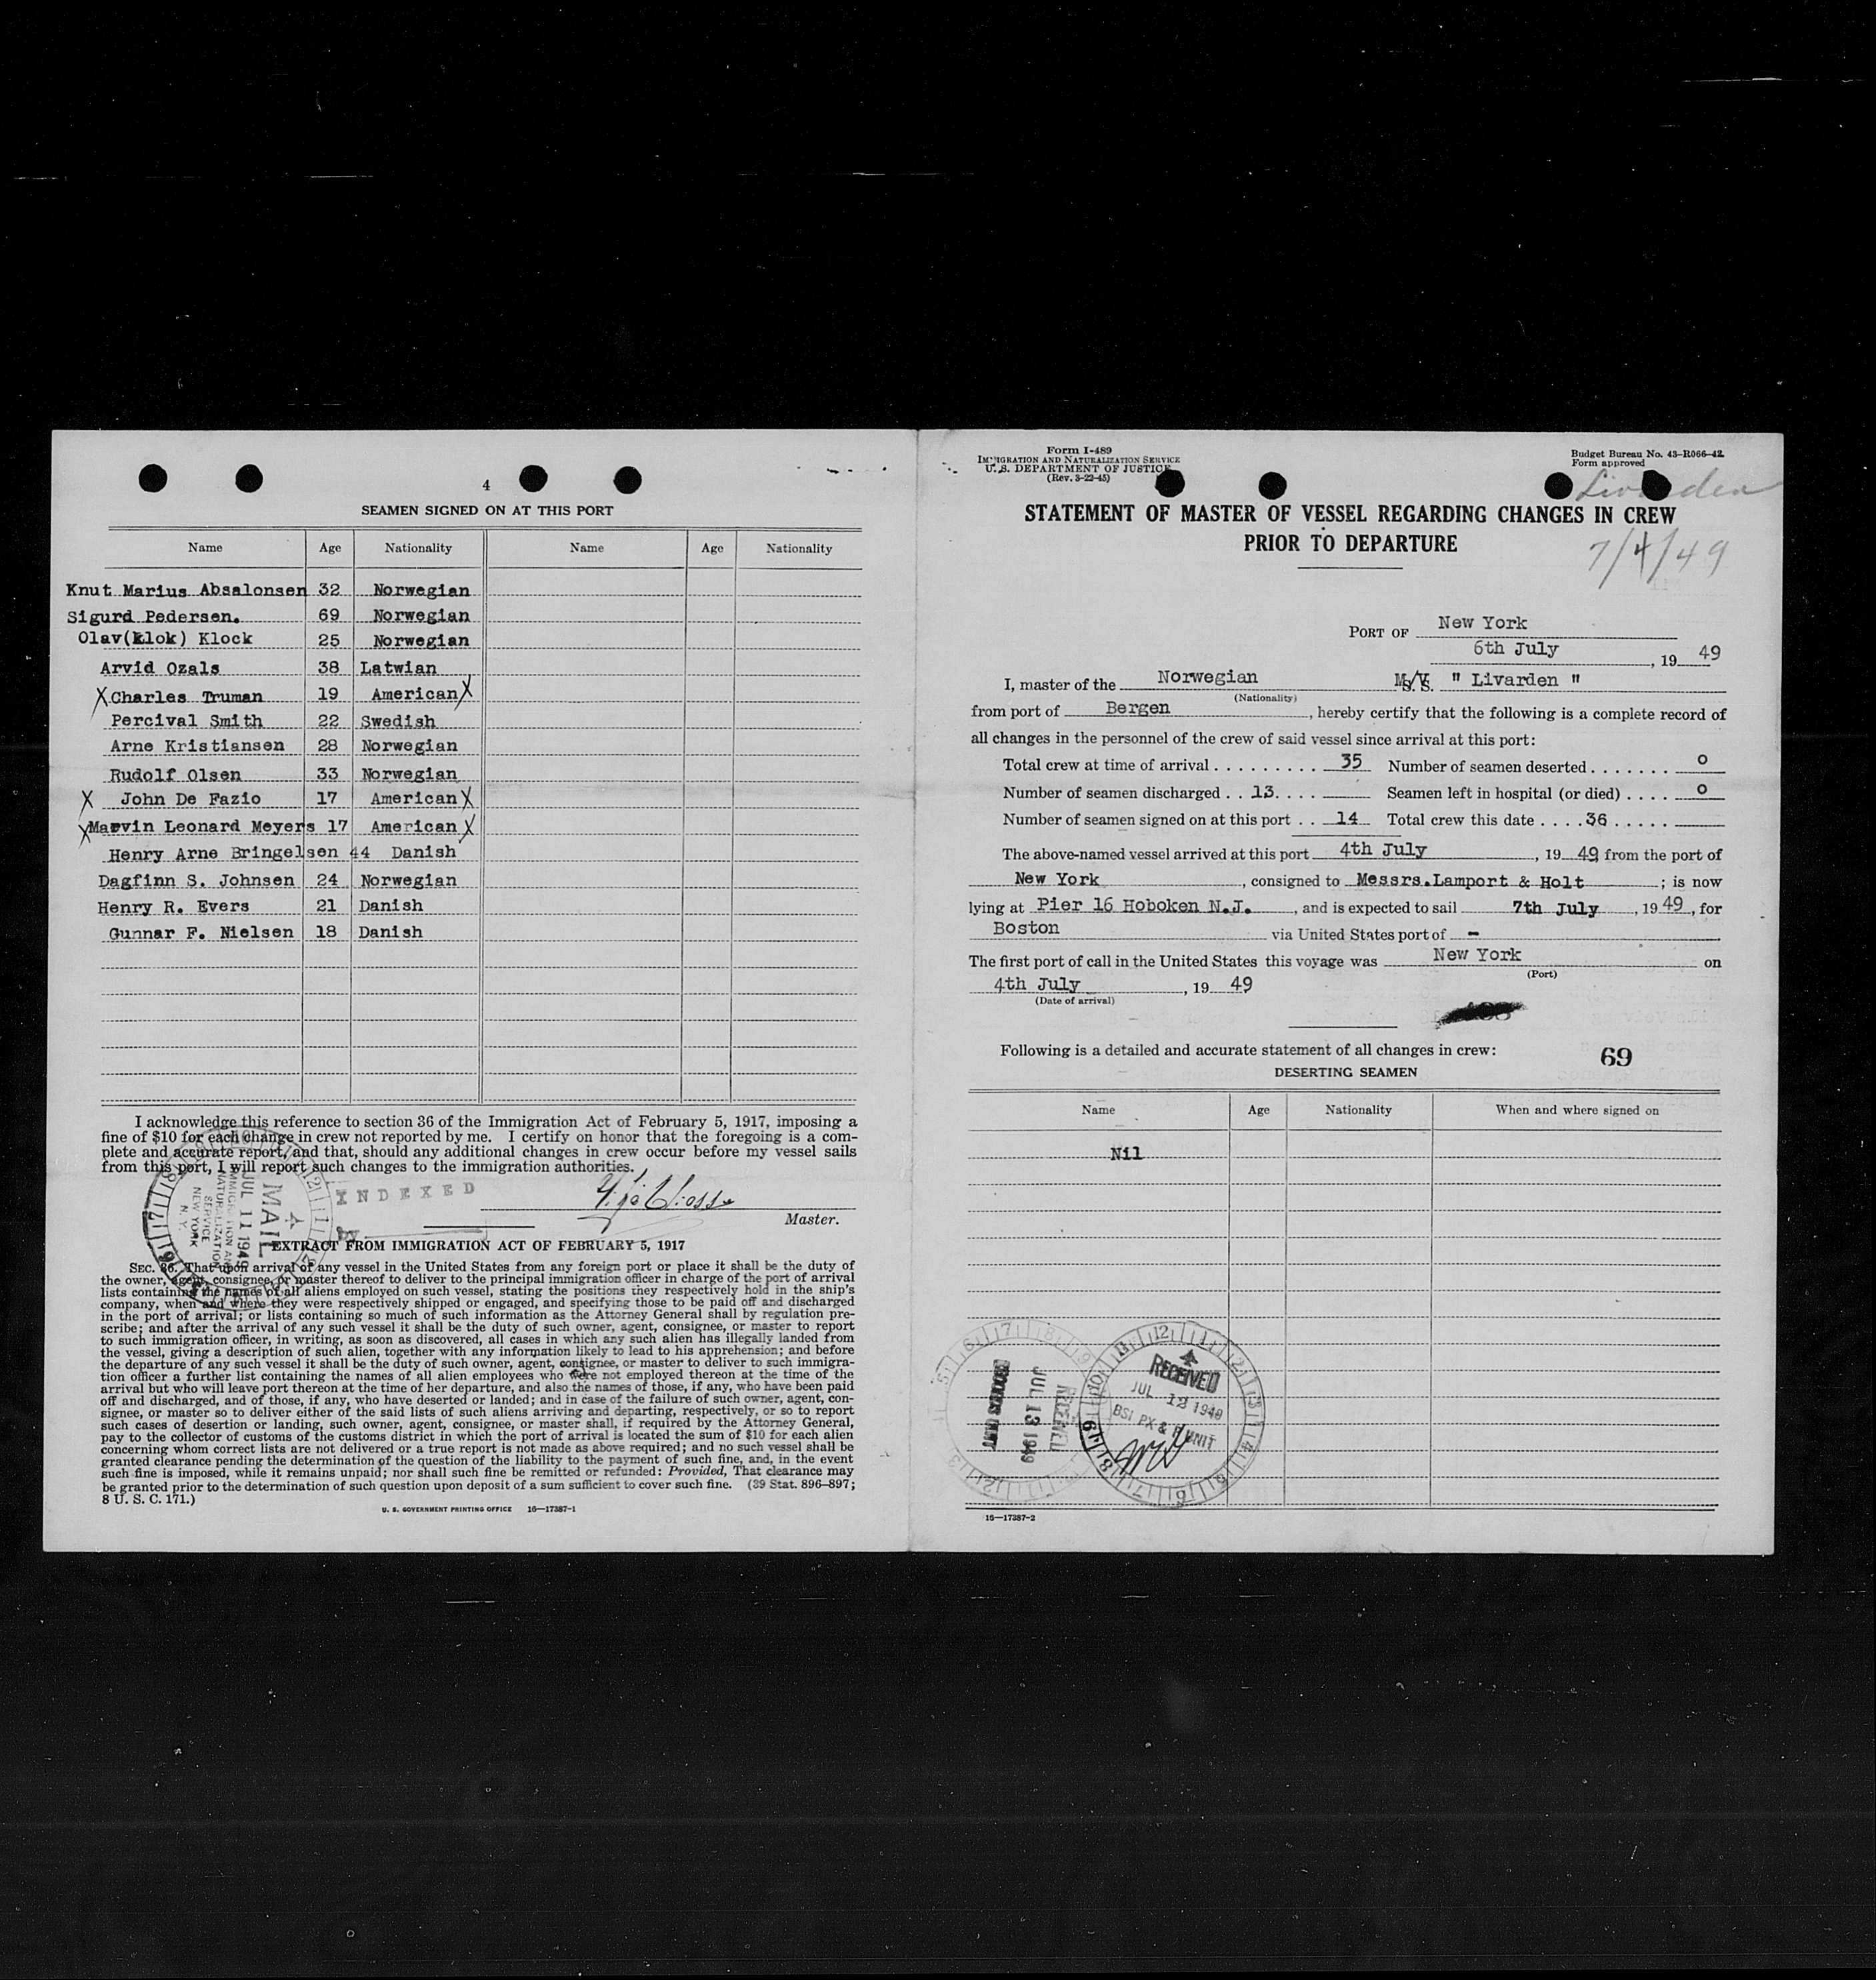 4
SEAMEN SIGNED ON AT THIS PORT
Name Age Nationality Name Age Nationality
Knut Marius Absalonsen 32 Norwegian
Sigurd Pedersen. 69 Norwegian
Olav(klok) Klock 25 Norwegian
Arvid Ozals 38 Latwian
X Charles Truman 19 American X
Percival Smith 22 Swedish
Arne Kristiansen 28 Norwegian
Rudolf Olsen 33 Norwegian
X John De Fazio 17 American X
X Marvin Leonard Meyers 17 American X
Henry Arne Bringelsen 44 Danish
Dagfinn S. Johnsen 24 Norwegian
Henry R. Evers 21 Danish
Gunnar F. Nielsen 18 Danish
I acknowledge this reference to section 36 of the Immigration Act of February 5, 1917, imposing a
fine of $10 for each change in crew not reported by me. I certify on honor that the foregoing is a com-
plete and accurate report, and that, should any additional changes in crew occur before my vessel sails
from this port, I will report such changes to the immigration authorities.
INDEXED
by
Master.
MAIL
JUL 11 1949
IMMIGRATION AND
NATURALIZATION
SERVICE
NEW YORK
N. Y.
EXTRACT FROM IMMIGRATION ACT OF FEBRUARY 5, 1917
SEC. 36. That upon arrival of any vessel in the United States from any foreign port or place it shall be the duty of
the owner, agent, consignee, or master thereof to deliver to the principal immigration officer in charge of the port of arrival
lists containing the names of all aliens employed on such vessel, stating the positions they respectively hold in the ship's
company, when and where they were respectively shipped or engaged, and specifying those to be paid off and discharged
in the port of arrival; or lists containing so much of such information as the Attorney General shall by regulation pre-
scribe; and after the arrival of any such vessel it shall be the duty of such owner, agent, consignee, or master to report
to such immigration officer, in writing, as soon as discovered, all cases in which any such alien has illegally landed from
the vessel, giving a description of such alien, together with any information likely to lead to his apprehension; and before
the departure of any such vessel it shall be the duty of such owner, agent, consignee, or master to deliver to such immigra-
tion officer a further list containing the names of all alien employees who were not employed thereon at the time of the
arrival but who will leave port thereon at the time of her departure, and also the names of those, if any, who have been paid
off and discharged, and of those, if any, who have deserted or landed; and in case of the failure of such owner, agent, con-
signee, or master so to deliver either of the said lists of such aliens arriving and departing, respectively, or so to report
such cases of desertion or landing, such owner, agent, consignee, or master shall, if required by the Attorney General,
pay to the collector of customs of the customs district in which the port of arrival is located the sum of $10 for each alien
concerning whom correct lists are not delivered or a true report is not made as above required; and no such vessel shall be
granted clearance pending the determination of the question of the liability to the payment of such fine, and, in the event
such fine is imposed, while it remains unpaid; nor shall such fine be remitted or refunded: Provided, That clearance may
be granted prior to the determination of such question upon deposit of a sum sufficient to cover such fine. (39 Stat. 896-897;
8 U. S. C. 171.)
U. S. GOVERNMENT PRINTING OFFICE 16—17387-1
Form I-489
IMMIGRATION AND NATURALIZATION SERVICE
U. S. DEPARTMENT OF JUSTICE
(Rev. 3-22-45)
Budget Bureau No. 43-R066-42
Form approved
Livarden
STATEMENT OF MASTER OF VESSEL REGARDING CHANGES IN CREW
PRIOR TO DEPARTURE
7/4/49
PORT OF New York
6th July, 19 49
I, master of the Norwegian M/V. " Livarden "
(Nationality)
from port of Bergen, hereby certify that the following is a complete record of
all changes in the personnel of the crew of said vessel since arrival at this port:
Total crew at time of arrival . . . . . . . . . . 35 Number of seamen deserted . . . . . . . 0
Number of seamen discharged . . 13. . . . Seamen left in hospital (or died) . . . . 0
Number of seamen signed on at this port . . 14 Total crew this date . . . . 36 . . . . .
The above-named vessel arrived at this port 4th July, 19 49 from the port of
New York, consigned to Messrs.Lamport & Holt; is now
lying at Pier 16 Hoboken N.J., and is expected to sail 7th July, 19 49, for
Boston via United States port of -
The first port of call in the United States this voyage was New York on
(Port)
4th July, 19 49
(Date of arrival)
Following is a detailed and accurate statement of all changes in crew:
69
DESERTING SEAMEN
Name Age Nationality When and where signed on
Nil
RECEIVED
JUL 13 1949
RECEIVED
JUL 12 1949
BSI PX & P UNIT
16—17387-2